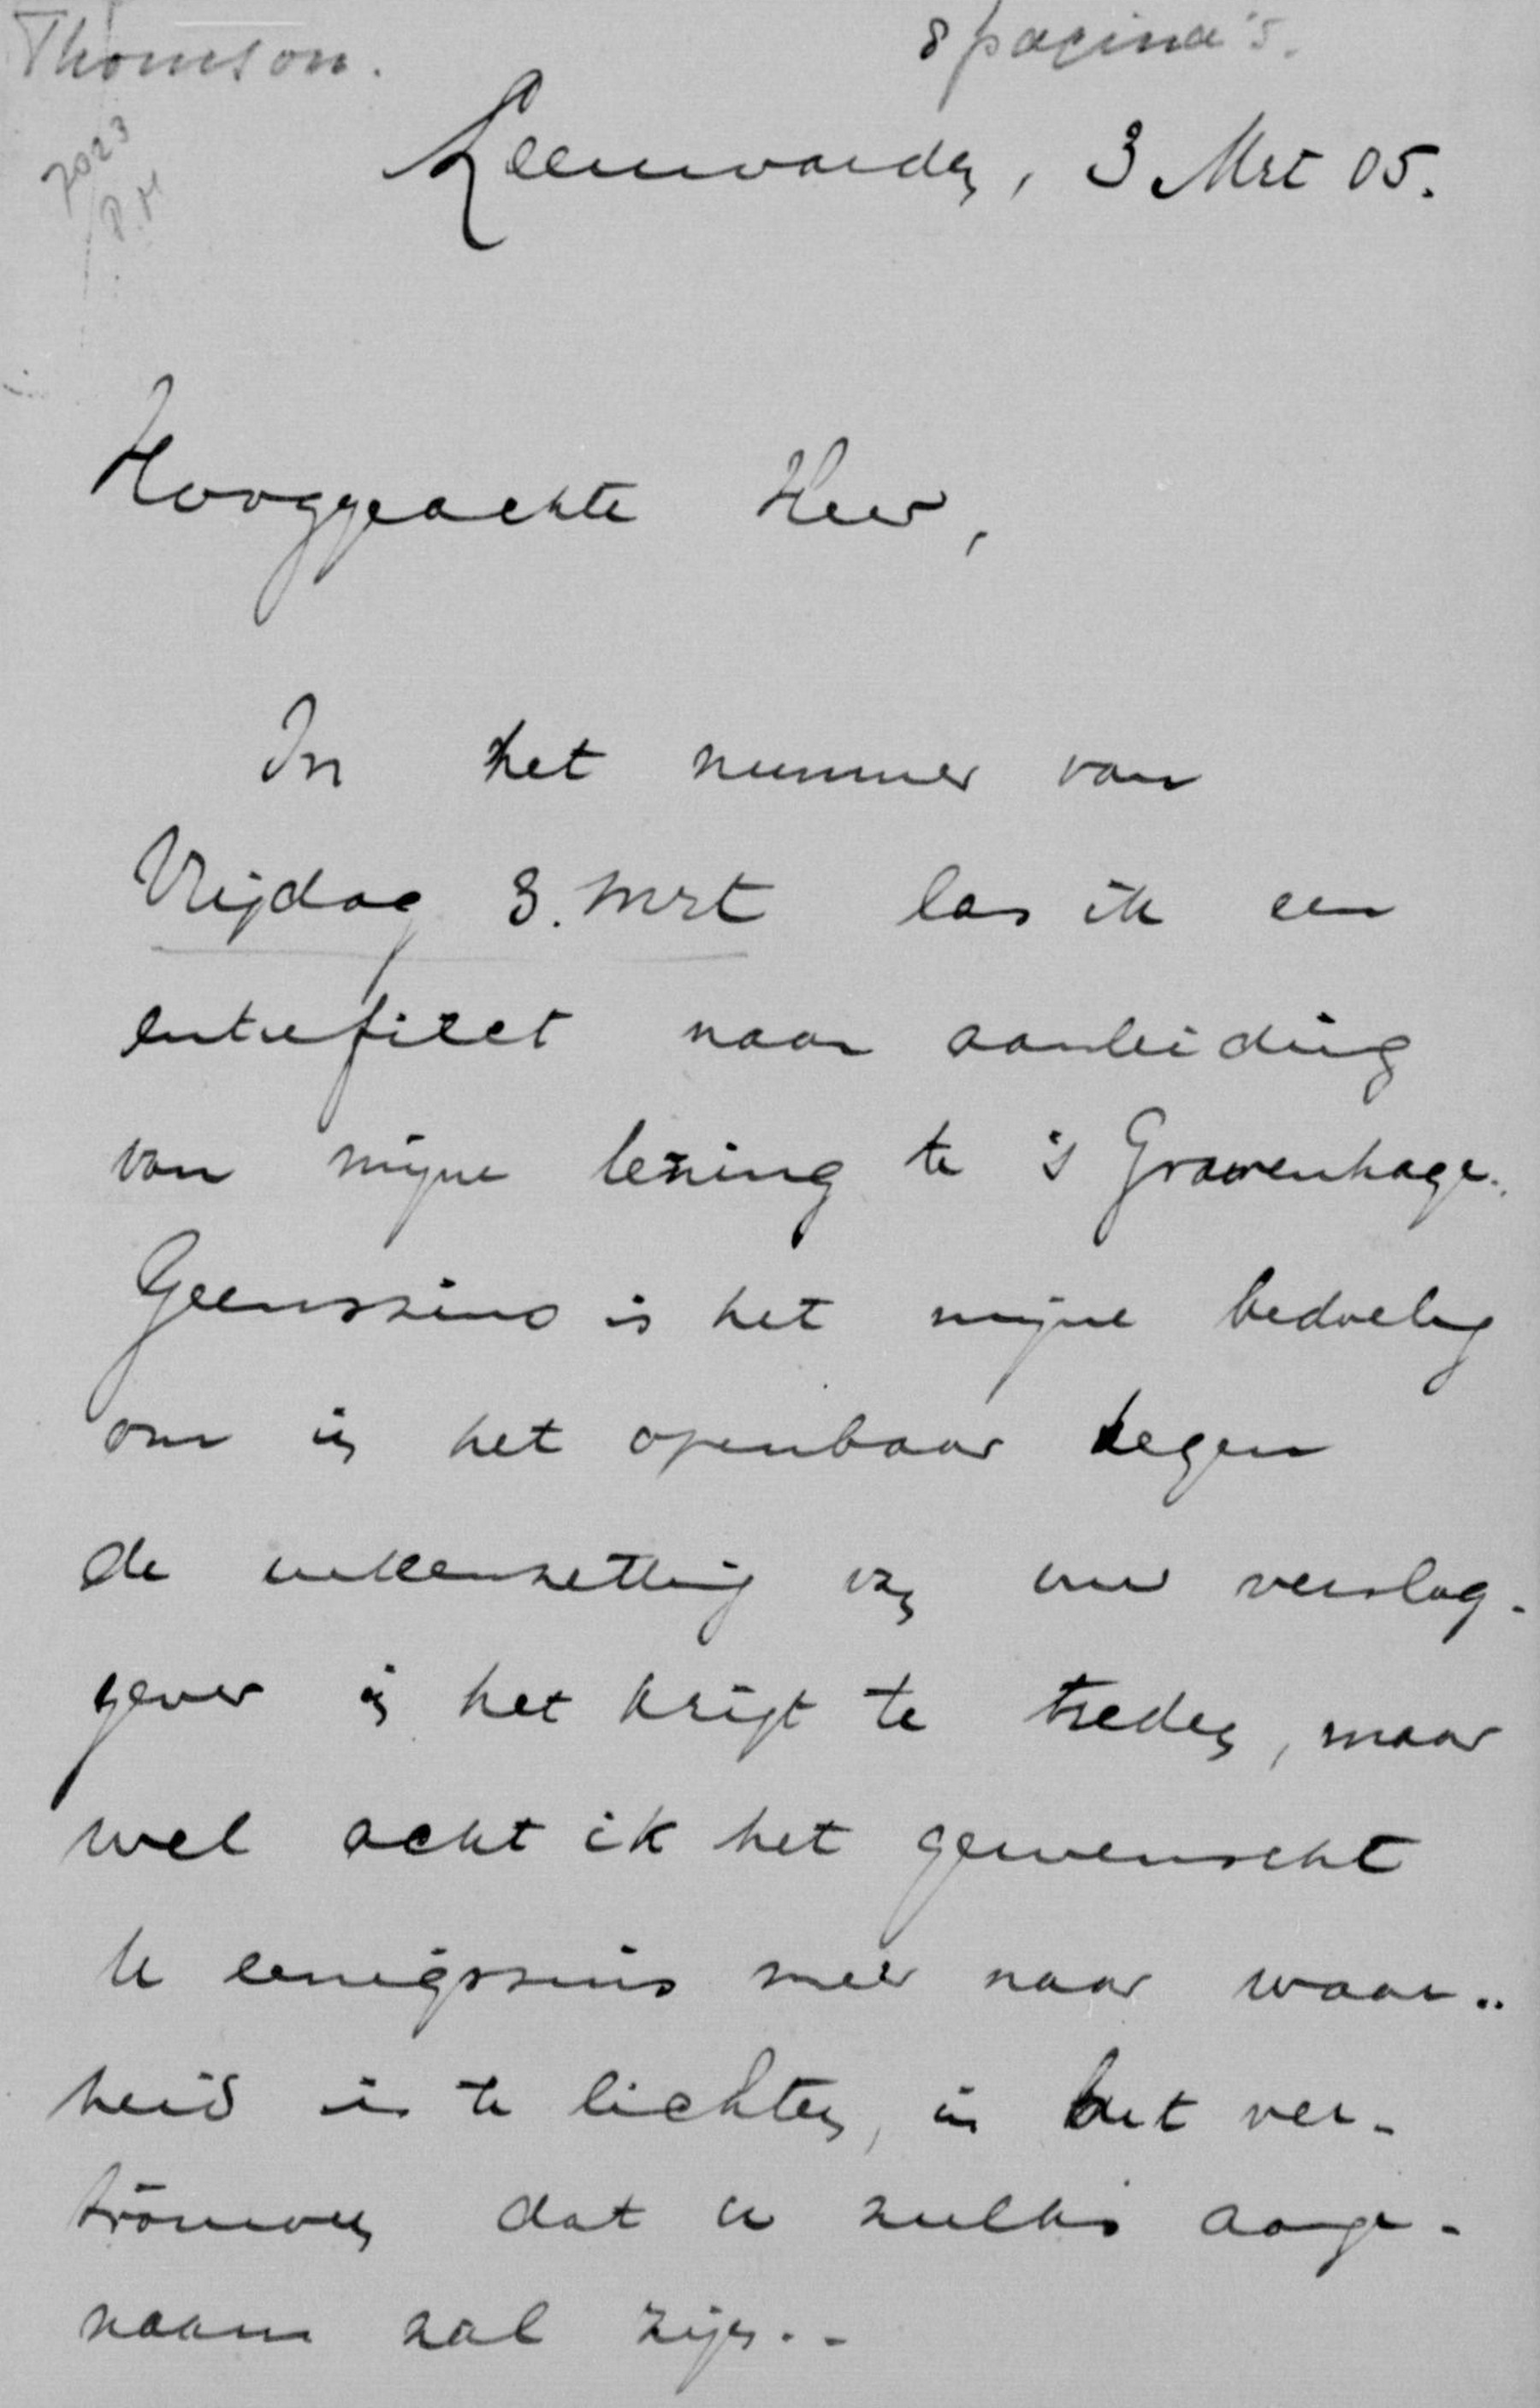 Thomson.
8 pagina's.
7023
P.M
Leeuwarden, 3 Mrt 05.
Hooggeachte Heer,
In het nummer van
Vrijdag 3. Mrt las ik een
entrefilet naar aanleiding
van mijne lezing te 's Gravenhage.
Geenszins is het mijne bedoeling
om in het openbaar tegen
de uiteenzetting van uw verslag-
gever in het krijt te treden, maar
wel acht ik het gewenscht
U eenigszins meer naar waar-
heid in te lichten, in het ver-
trouwen dat u zulks aange-
naam zal zijn.-